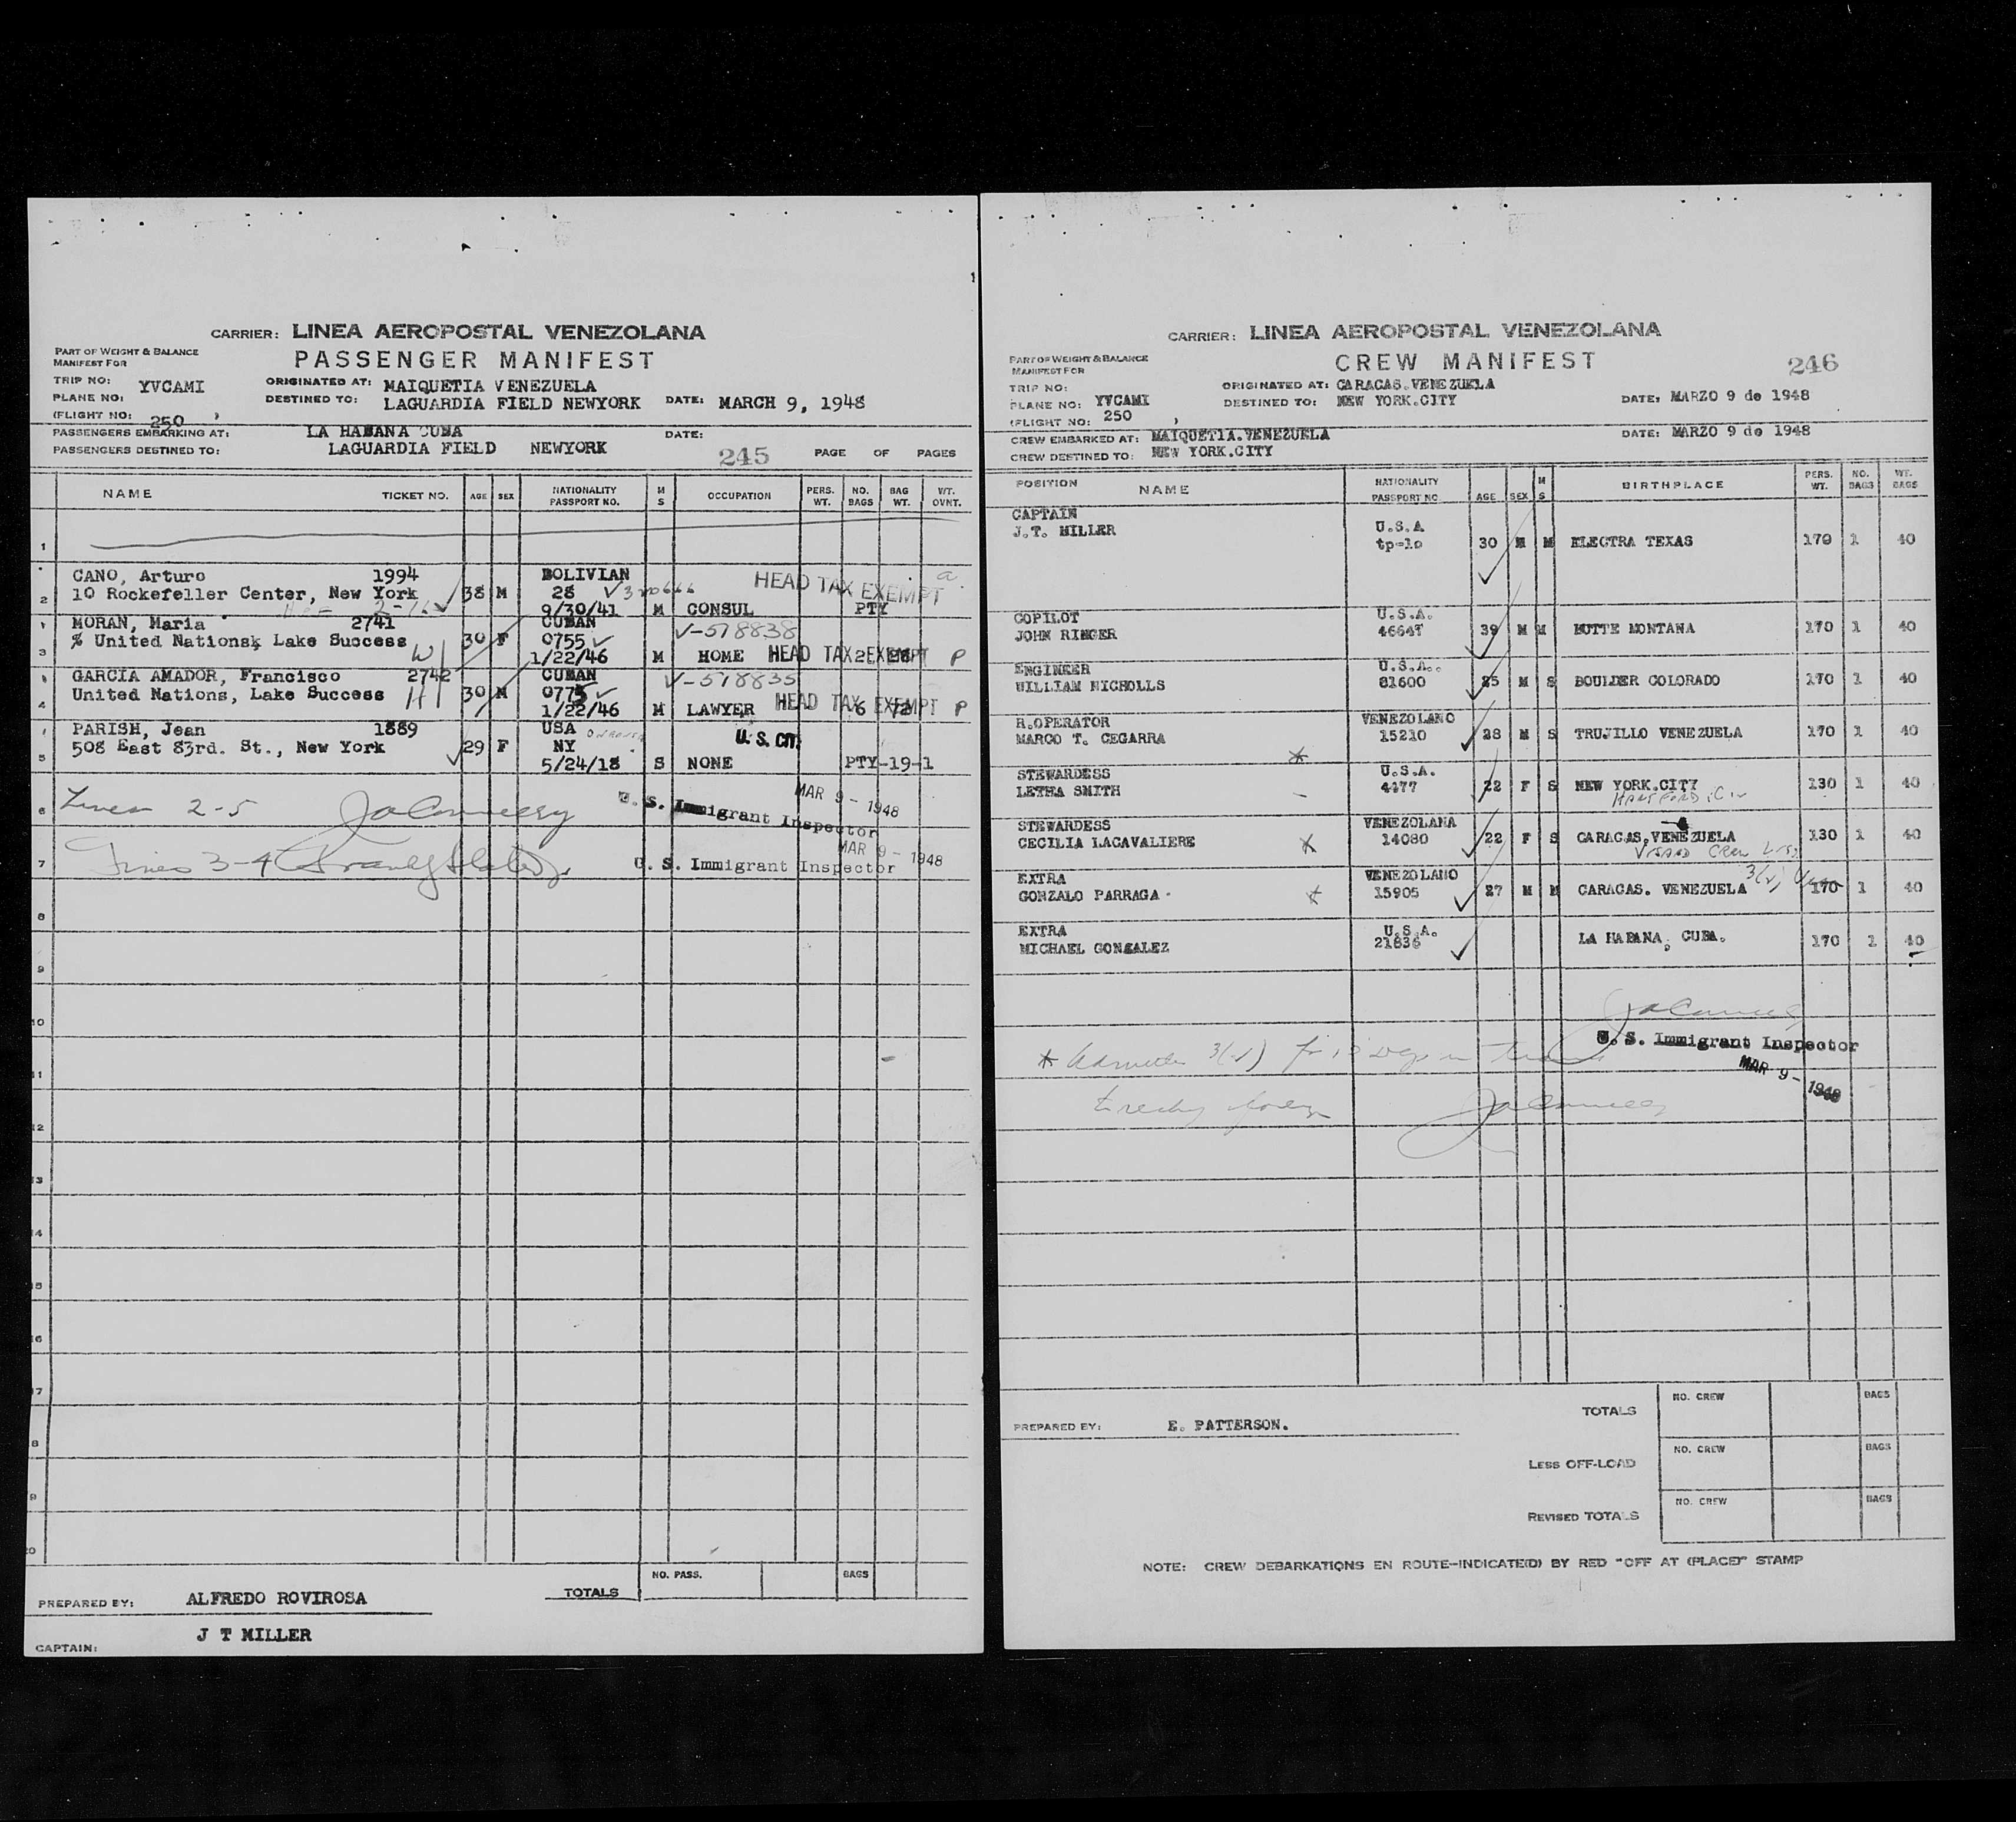 CARRIER: LINEA AEROPOSTAL VENEZOLANA
PART OF WEIGHT & BALANCE
MANIFEST FOR
PASSENGER MANIFEST
TRIP NO:
PLANE NO: YVCAMI
(FLIGHT NO: 250 )
ORIGINATED AT: MAIQUETIA VENEZUELA
DESTINED TO: LAGUARDIA FIELD NEWYORK DATE: MARCH 9, 1948
PASSENGERS EMBARKING AT: LA HABANA CUBA DATE:
PASSENGERS DESTINED TO: LAGUARDIA FIELD NEWYORK 245 PAGE OF PAGES
NAME TICKET NO. AGE SEX NATIONALITY PASSPORT NO. M S OCCUPATION PERS. WT. NO. BAGS BAG WT. WT. OVNT.
1
CANO, Arturo 1994 BOLIVIAN HEAD TAX EXEMPT
2 10 Rockefeller Center, New York 38 M 28
9/30/41 M CONSUL PTY
MORAN, Maria 2741 CUBAN V-518838
% United Nations, Lake Success W 30 F 0755
3 1/22/46 M HOME HEAD TAX EXEMPT 2 P
GARCIA AMADOR, Francisco 2742 CUBAN V-518835
United Nations, Lake Success H 30 M 0775
4 1/22/46 M LAWYER HEAD TAX EXEMPT 6 72 P
PARISH, Jean 1889 USA U.S. CIT.
508 East 83rd. St., New York 29 F NY
5 5/24/18 S NONE PTY-19-1
6 Lines 2-5 MAR 9 - 1948
U. S. Immigrant Inspector
7 Lines 3-4 MAR 9 - 1948
U. S. Immigrant Inspector
8
9
10
11
12
13
14
15
16
17
18
19
20
TOTALS NO. PASS. BAGS
PREPARED BY: ALFREDO ROVIROSA
CAPTAIN: J T MILLER
CARRIER: LINEA AEROPOSTAL VENEZOLANA
PART OF WEIGHT & BALANCE
MANIFEST FOR
CREW MANIFEST 246
TRIP NO:
PLANE NO: YVCAMI
(FLIGHT NO: 250 )
ORIGINATED AT: CARACAS.VENEZUELA
DESTINED TO: NEW YORK.CITY DATE: MARZO 9 de 1948
CREW EMBARKED AT: MAIQUETIA.VENEZUELA DATE: MARZO 9 de 1948
CREW DESTINED TO: NEW YORK.CITY
POSITION NAME NATIONALITY PASSPORT NO AGE SEX M S BIRTHPLACE PERS. WT. NO. BAGS WT. BAGS
CAPTAIN U.S.A
J.T. MILLER tp-lo 30 M M ELECTRA TEXAS 170 1 40
COPILOT U.S.A.
JOHN RINGER 46647 39 M M BUTTE MONTANA 170 1 40
ENGINEER U.S.A..
WILLIAM NICHOLLS 81600 25 M S BOULDER COLORADO 170 1 40
R.OPERATOR VENEZOLANO
MARCO T. CEGARRA 15210 28 M S TRUJILLO VENEZUELA 170 1 40
STEWARDESS U.S.A.
LETHA SMITH 4477 22 F S NEW YORK.CITY 130 1 40
STEWARDESS VENEZOLANA
CECILIA LACAVALIERE 14080 22 F S CARACAS.VENEZUELA 130 1 40
EXTRA VENEZOLANO
GONZALO PARRAGA 15905 27 M M CARACAS. VENEZUELA 170 1 40
EXTRA U.S.A.
MICHAEL GONZALEZ 21836 LA HABANA, CUBA. 170 1 40
U. S. Immigrant Inspector
MAR 9 - 1948
PREPARED BY: E. PATTERSON.
TOTALS NO. CREW BAGS
LESS OFF-LOAD NO. CREW BAGS
REVISED TOTALS NO. CREW BAGS
NOTE: CREW DEBARKATIONS EN ROUTE-INDICATE(D) BY RED "OFF AT (PLACE)" STAMP